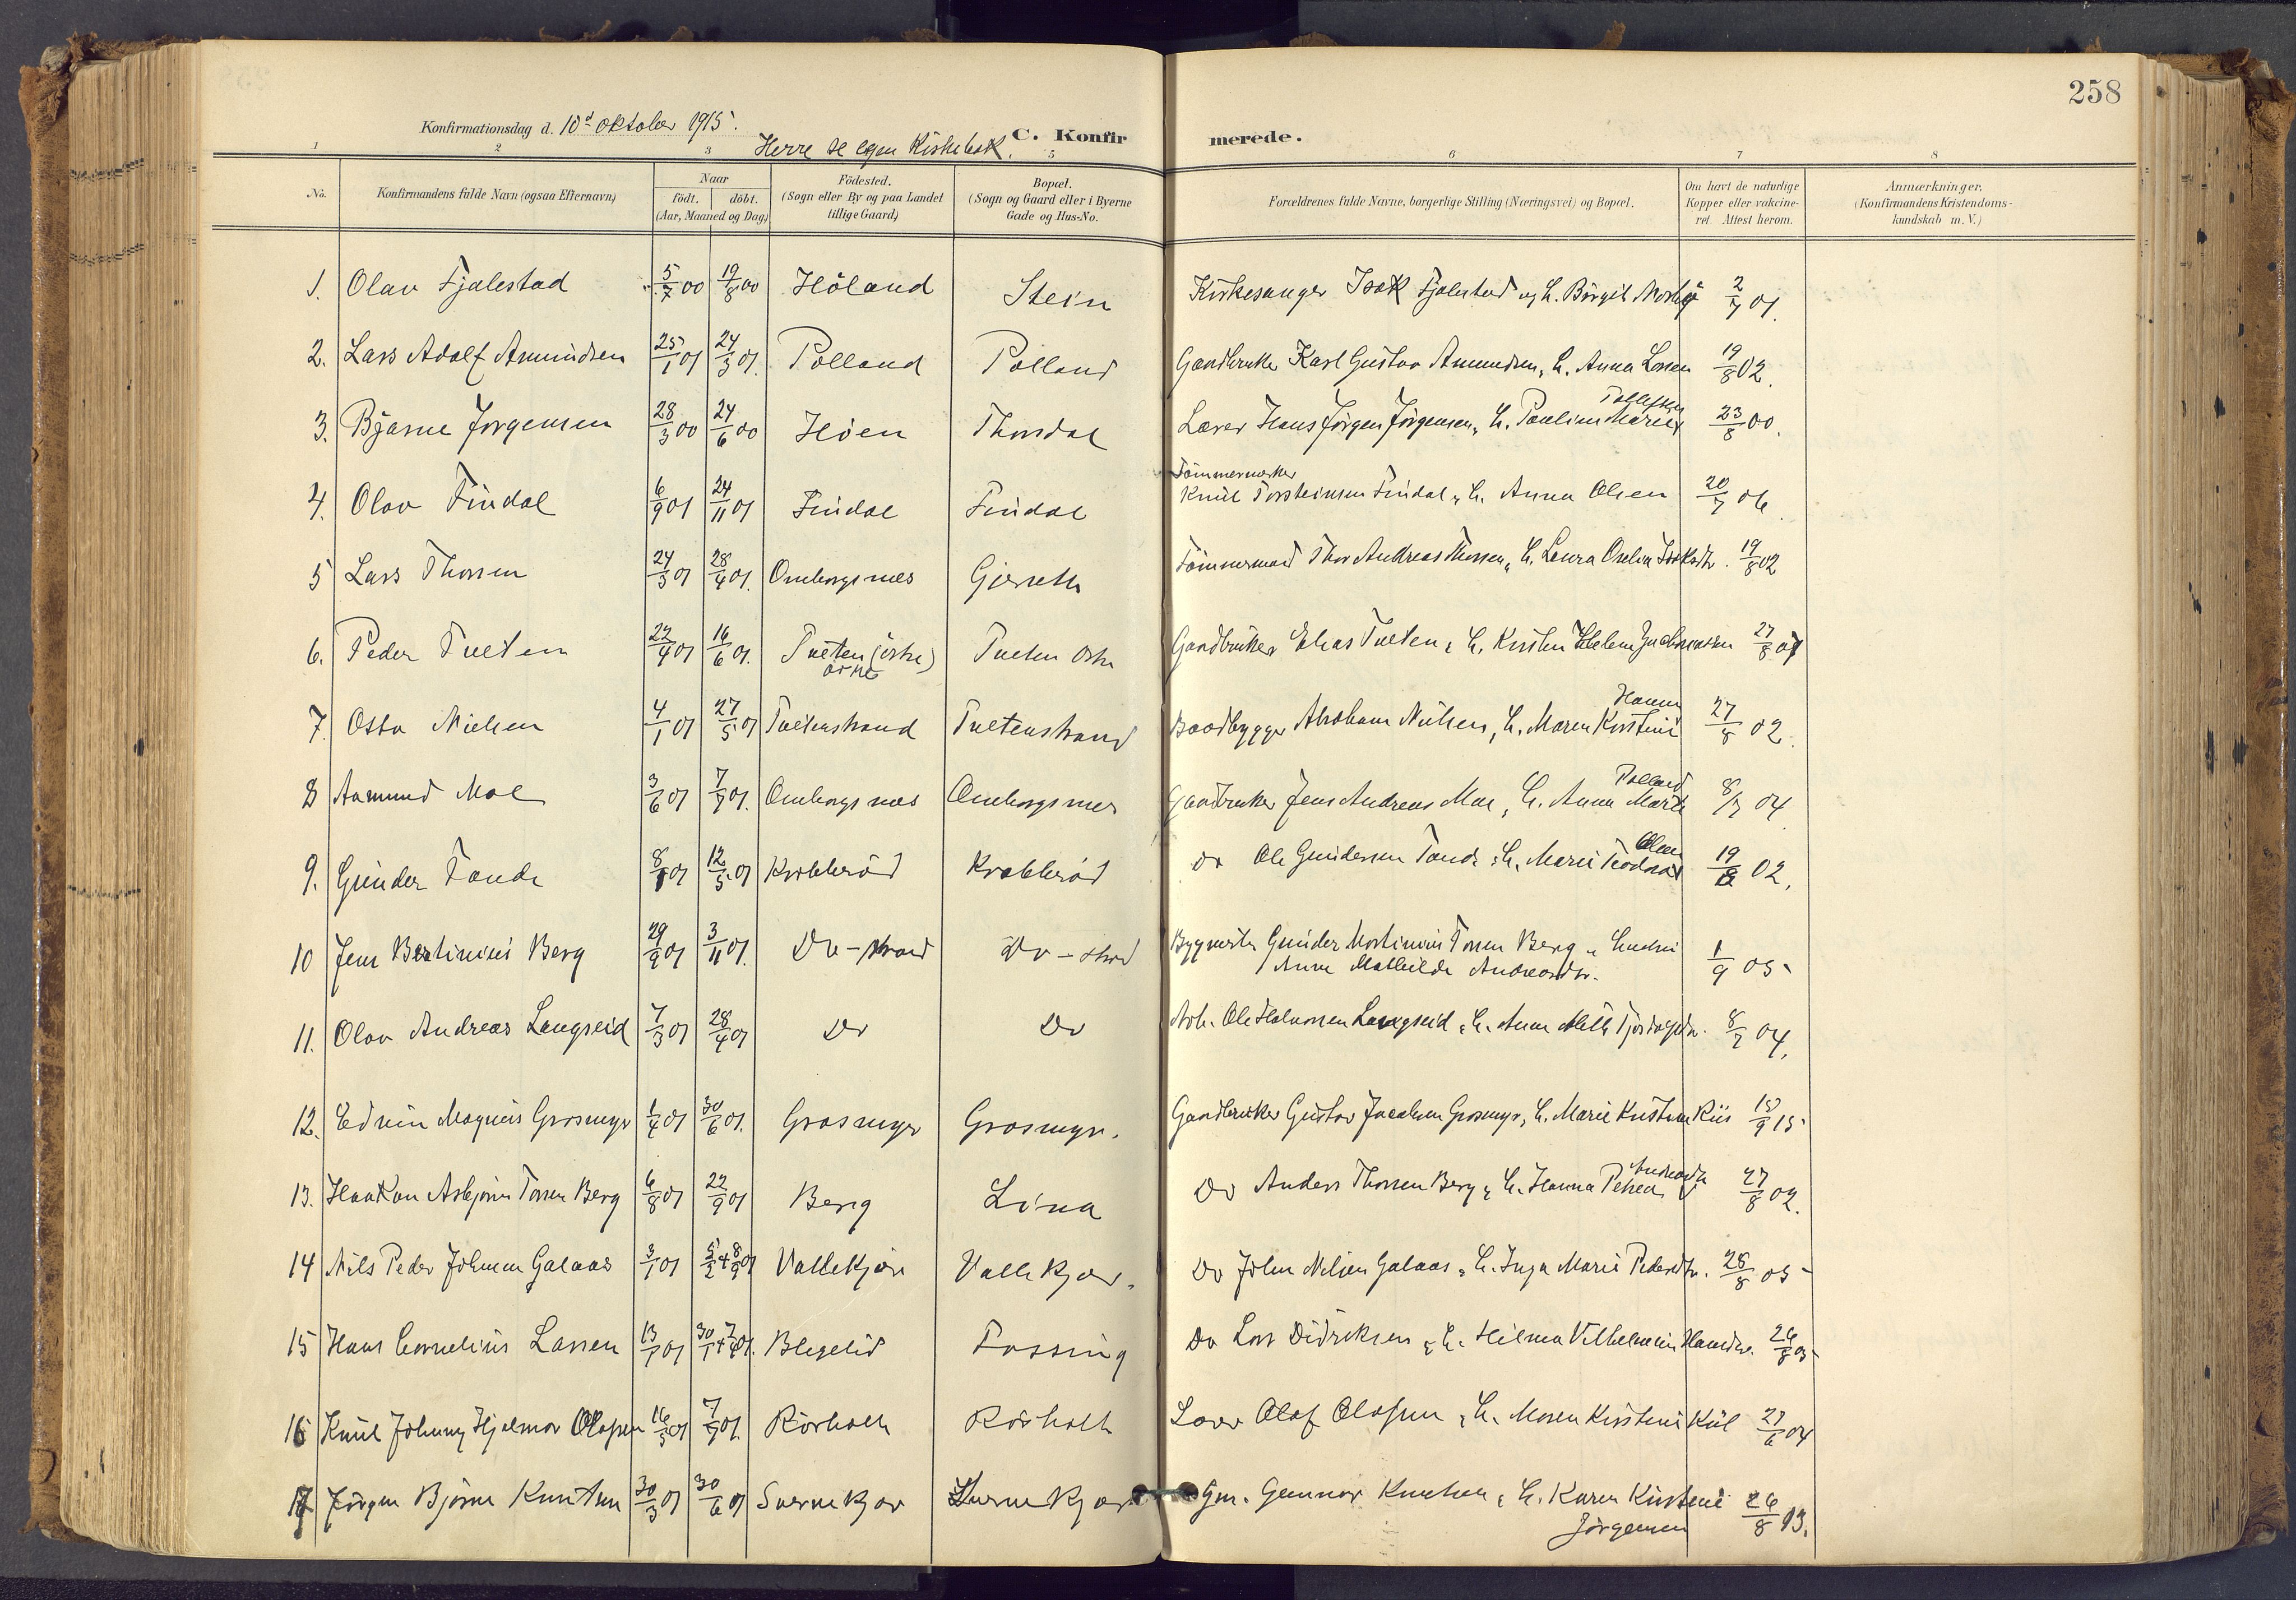 258
Konfirmationsdag d. 10de oktober 1915.
Herre se egen Kirkebok.
C. Konfirmerede.
1 2 3 5 6 7 8
No.
Konfirmandens fulde Navn (ogsaa Efternavn)
Naar
födt. döbt.
(Aar, Maaned og Dag)
Födested.
(Sogn eller By og paa Landet
tillige Gaard)
Bopæl.
(Sogn og Gaard eller i Byerne
Gade og Hus-No.
Forældrenes fulde Navne, borgerlige Stilling (Næringsvei) og Bopæl.
Om havt de naturlige
Kopper eller vakcine-
ret. Attest herom.
Anmærkninger.
(Konfirmandens Kristendoms-
kundskab m. V.)
1. Olav Fjalestad 5/7 00 19/8 00 Höland Stein Kirkesanger Isak Fjalestad og h. Birgit 2/7 01.
2. Lars Adolf Amundsen 25/1 01 24/3 01. Polland Polland Gaardbruker Karl Gustav Amundsen, h. Anna Larsen 19/8 02.
Tollefsen
3. Bjarne Jörgensen 28/3 00 24/6 00 Höen Thordal Lærer Hans Jörgen Jörgensen, h. Pauline Marie 23/8 00.
Tömmermerker
4. Olav Findal 6/9 01 24/11 01 Findal Findal Knut Torsteinsen Findal, h. Anna Olsen 20/7 06.
5 Lars Thorsen 24/3 01 28/4 01. Omborgsnes Tömmermand Thor Andreas Thorsen, h. Laura Isaksdtr. 19/8 02
6. Peder Tveten 22/4 01 16/6 01. Tveten (östre) Tveten östre Gaardbruker Elias Tveten, h. Kirsten Helene 27/8 07
östre
Hansen
7. Otto Nielsen 4/1 01 27/5 01 Tvetenstrand Tvetenstrand Baadbygger Abraham Nielsen, h. Maren Kirstine 27/8 02.
Polland
8 Aamund Moe 3/6 01 7/7 01. Omborgsnes Omborgsnes Gaardbruker Jens Andreas Moe, h. Anna Marte 8/7 04
Olsen
9. Gunder Tande 8/1 01 12/5 01 Krabberöd Krabberöd do Ole Gundersen Tande, h. Marie 19/8 02.
10 Jens Bertinius Berg 29/9 01 3/11 01. Do - strand Do - strand Bygmester Gunder Martinius Torsen Berg, hustru 1/9 05
Anne Mathilde Andreasdtr.
11. Olav Andreas Langseid 7/3 01 28/4 01 Do Do Arb. Ole Halvorsen Langseid, h. Anne 8/7 04.
12. Edvin Magnus Grasmyr 1/4 01 30/6 01. Grasmyr Grasmyr. Gaardbruker Gustav Jacobsen Grasmyr, h. Marie Kristine Riis 15/9 15
Andreasdtr
13. Haakon Asbjörn Torsen Berg 6/8 01 22/9 01 Berg Lina Do Anders Thorsen Berg, h. Hanna Petrea 27/8 02.
14 Nils Peder Johnsen Galaas 3/1 01 5/2 + 8/9 01 Vallekjær Vallekjær. Do John Nilsen Galaas, h. Inga Marie Pedersdtr. 28/8 05
15 Hans Cornelius Larsen 13/1 01 30/1 + 7/4 01. Blegelid Fossing Do Lars Didriksen, h. Hilma Vilhelmine Hansdtr. 26/8 05
16 Knut Johnny Hjelmar Olafsen 16/5 01 7/7 01. Rörholt Rörholt Lærer Olaf Olafsen, h. Maren Kirstine Kiil 27/6 04
17 Jörgen Björn Knutsen 30/3 01 30/6 01 Svenekjær Svenekjær Gm. Gunnar Knutsen, h. Karen Kirstine 26/8 13.
Jörgensen